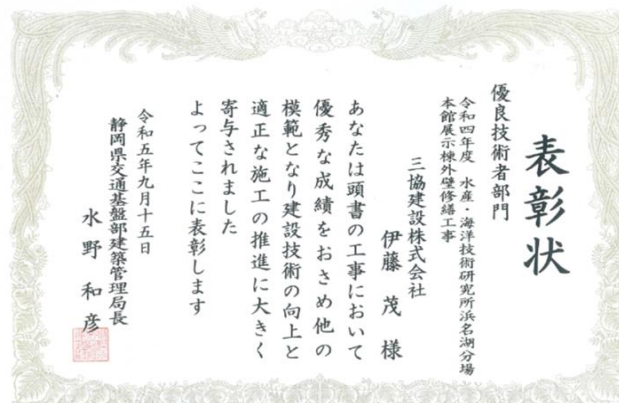 表彰状
優良技術者部門
令和四年度 水産・海洋技術研究所浜名湖分場
本館展示棟外壁修繕工事
三協建設株式会社
伊藤 茂 様
あなたは頭書の工事において
優秀な成績をおさめ他の
模範となり建設技術の向上と
適正な施工の推進に大きく
寄与されました
よってここに表彰します
令和五年九月十五日
静岡県交通基盤部建築管理局長
水野 和彦